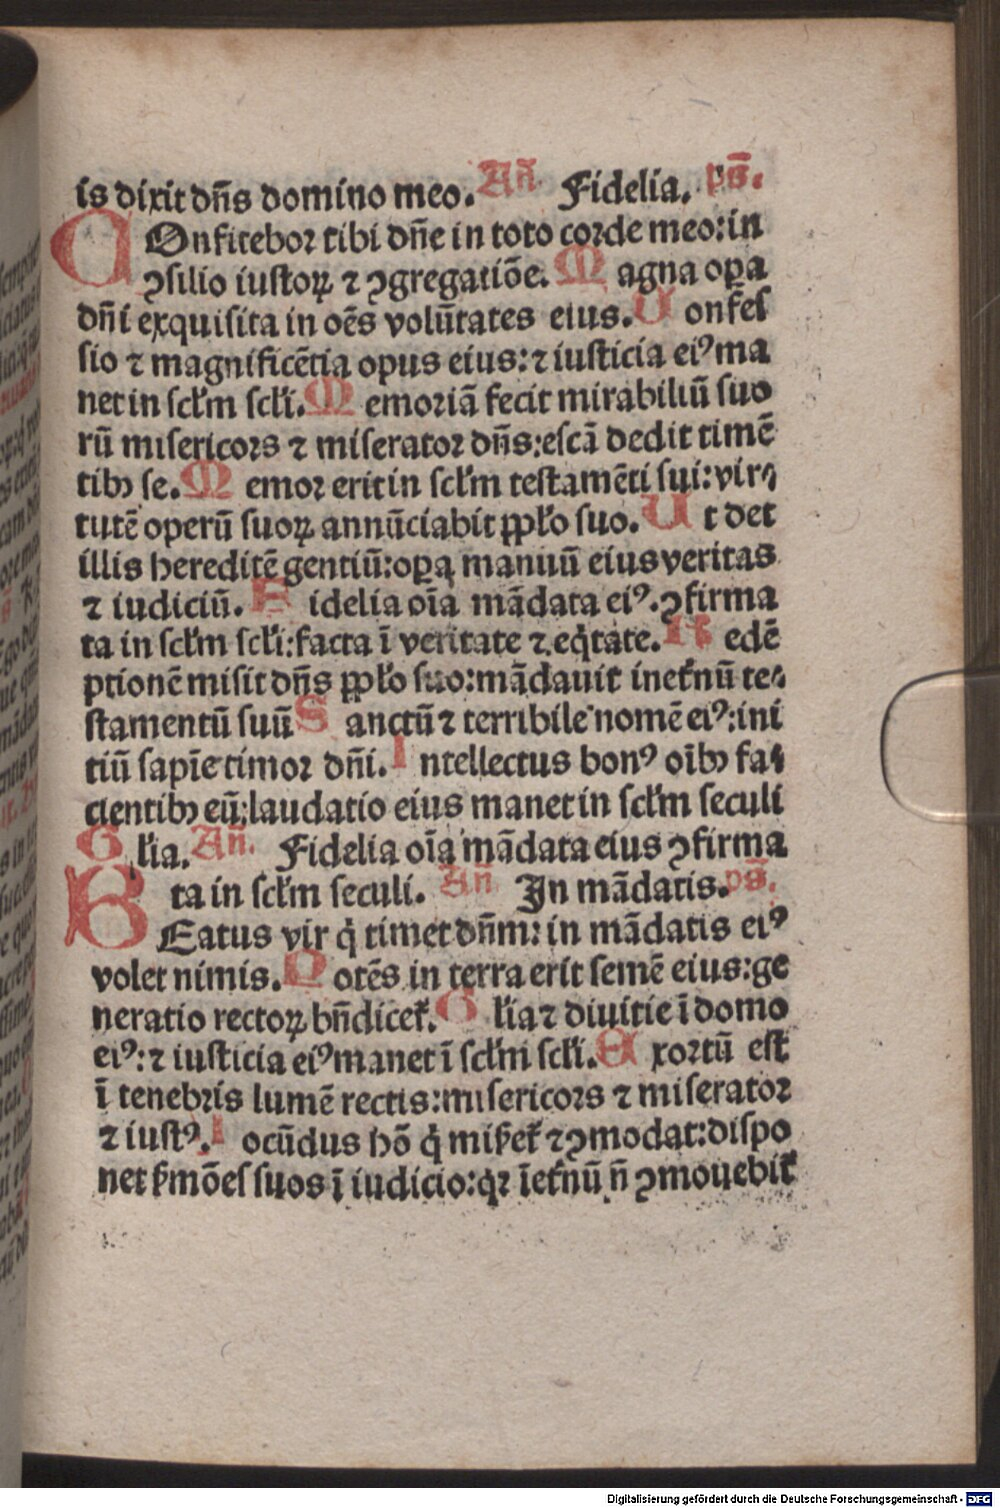 is dixit dñs domino meo. Añ Fidelia. ps̄.
COnfitebor tibi dñe in toto corde meo: in
ꝯsilio iustoꝝ ⁊ ꝯgregatiōe. Magna oꝑa
dñi exquisita in oēs volūtates eius. Confes
sio ⁊ magnificētia opus eius: ⁊ iusticia eiꝰ ma
net in scl̄m scl̄i. Memoriā fecit mirabiliū suo
rū misericors ⁊ miserator dñs: escā dedit timē
tibꝫ se. Memor erit in scl̄m testamēti sui: vir⸗
tutē operū suoꝝ annūciabit ꝓpl̄o suo. Ut det
illis hereditē gentiū: oꝑa manuū eius veritas
⁊ iudiciū. Fidelia oīa mādata eiꝰ. ꝯfirma
ta in scl̄m scl̄i: facta ī veritate ⁊ eq̄tate. Redē
ptionē misit dñs ꝓpl̄o suo: mādauit inet̄nū te⸗
stamentū suū Sanctū ⁊ terribile nomē eiꝰ: ini
tiū sapīe timor dñi. Intellectus bonꝰ oībꝫ fa⸗
cientibꝫ eū: laudatio eius manet in scl̄m seculi
Gl'ia. Añ. Fidelia oīa mādata eius ꝯfirma
ta in scl̄m seculi. Añ In mādatis. ps̄.
BEatus vir q̇ timet dñm: in mādatis eiꝰ
volet nimis. Potēs in terra erit semē eius: ge
neratio rectoꝝ bñdicet̄. Gl'ia ⁊ diuitie ī domo
eiꝰ: ⁊ iusticia eiꝰ manet ī scl̄m scl̄i. Exortū est
ī tenebris lumē rectis: misericors ⁊ miserator
⁊ iustꝰ. Iocūdus hō q̇ mis̄et̄ ⁊ ꝯmodat: dispo
net s̄mōes suos ī iudicio: qꝛ īet̄nū ñ ꝯmouebit̄
Digitalisierung gefördert durch die Deutsche Forschungsgemeinschaft - DFG